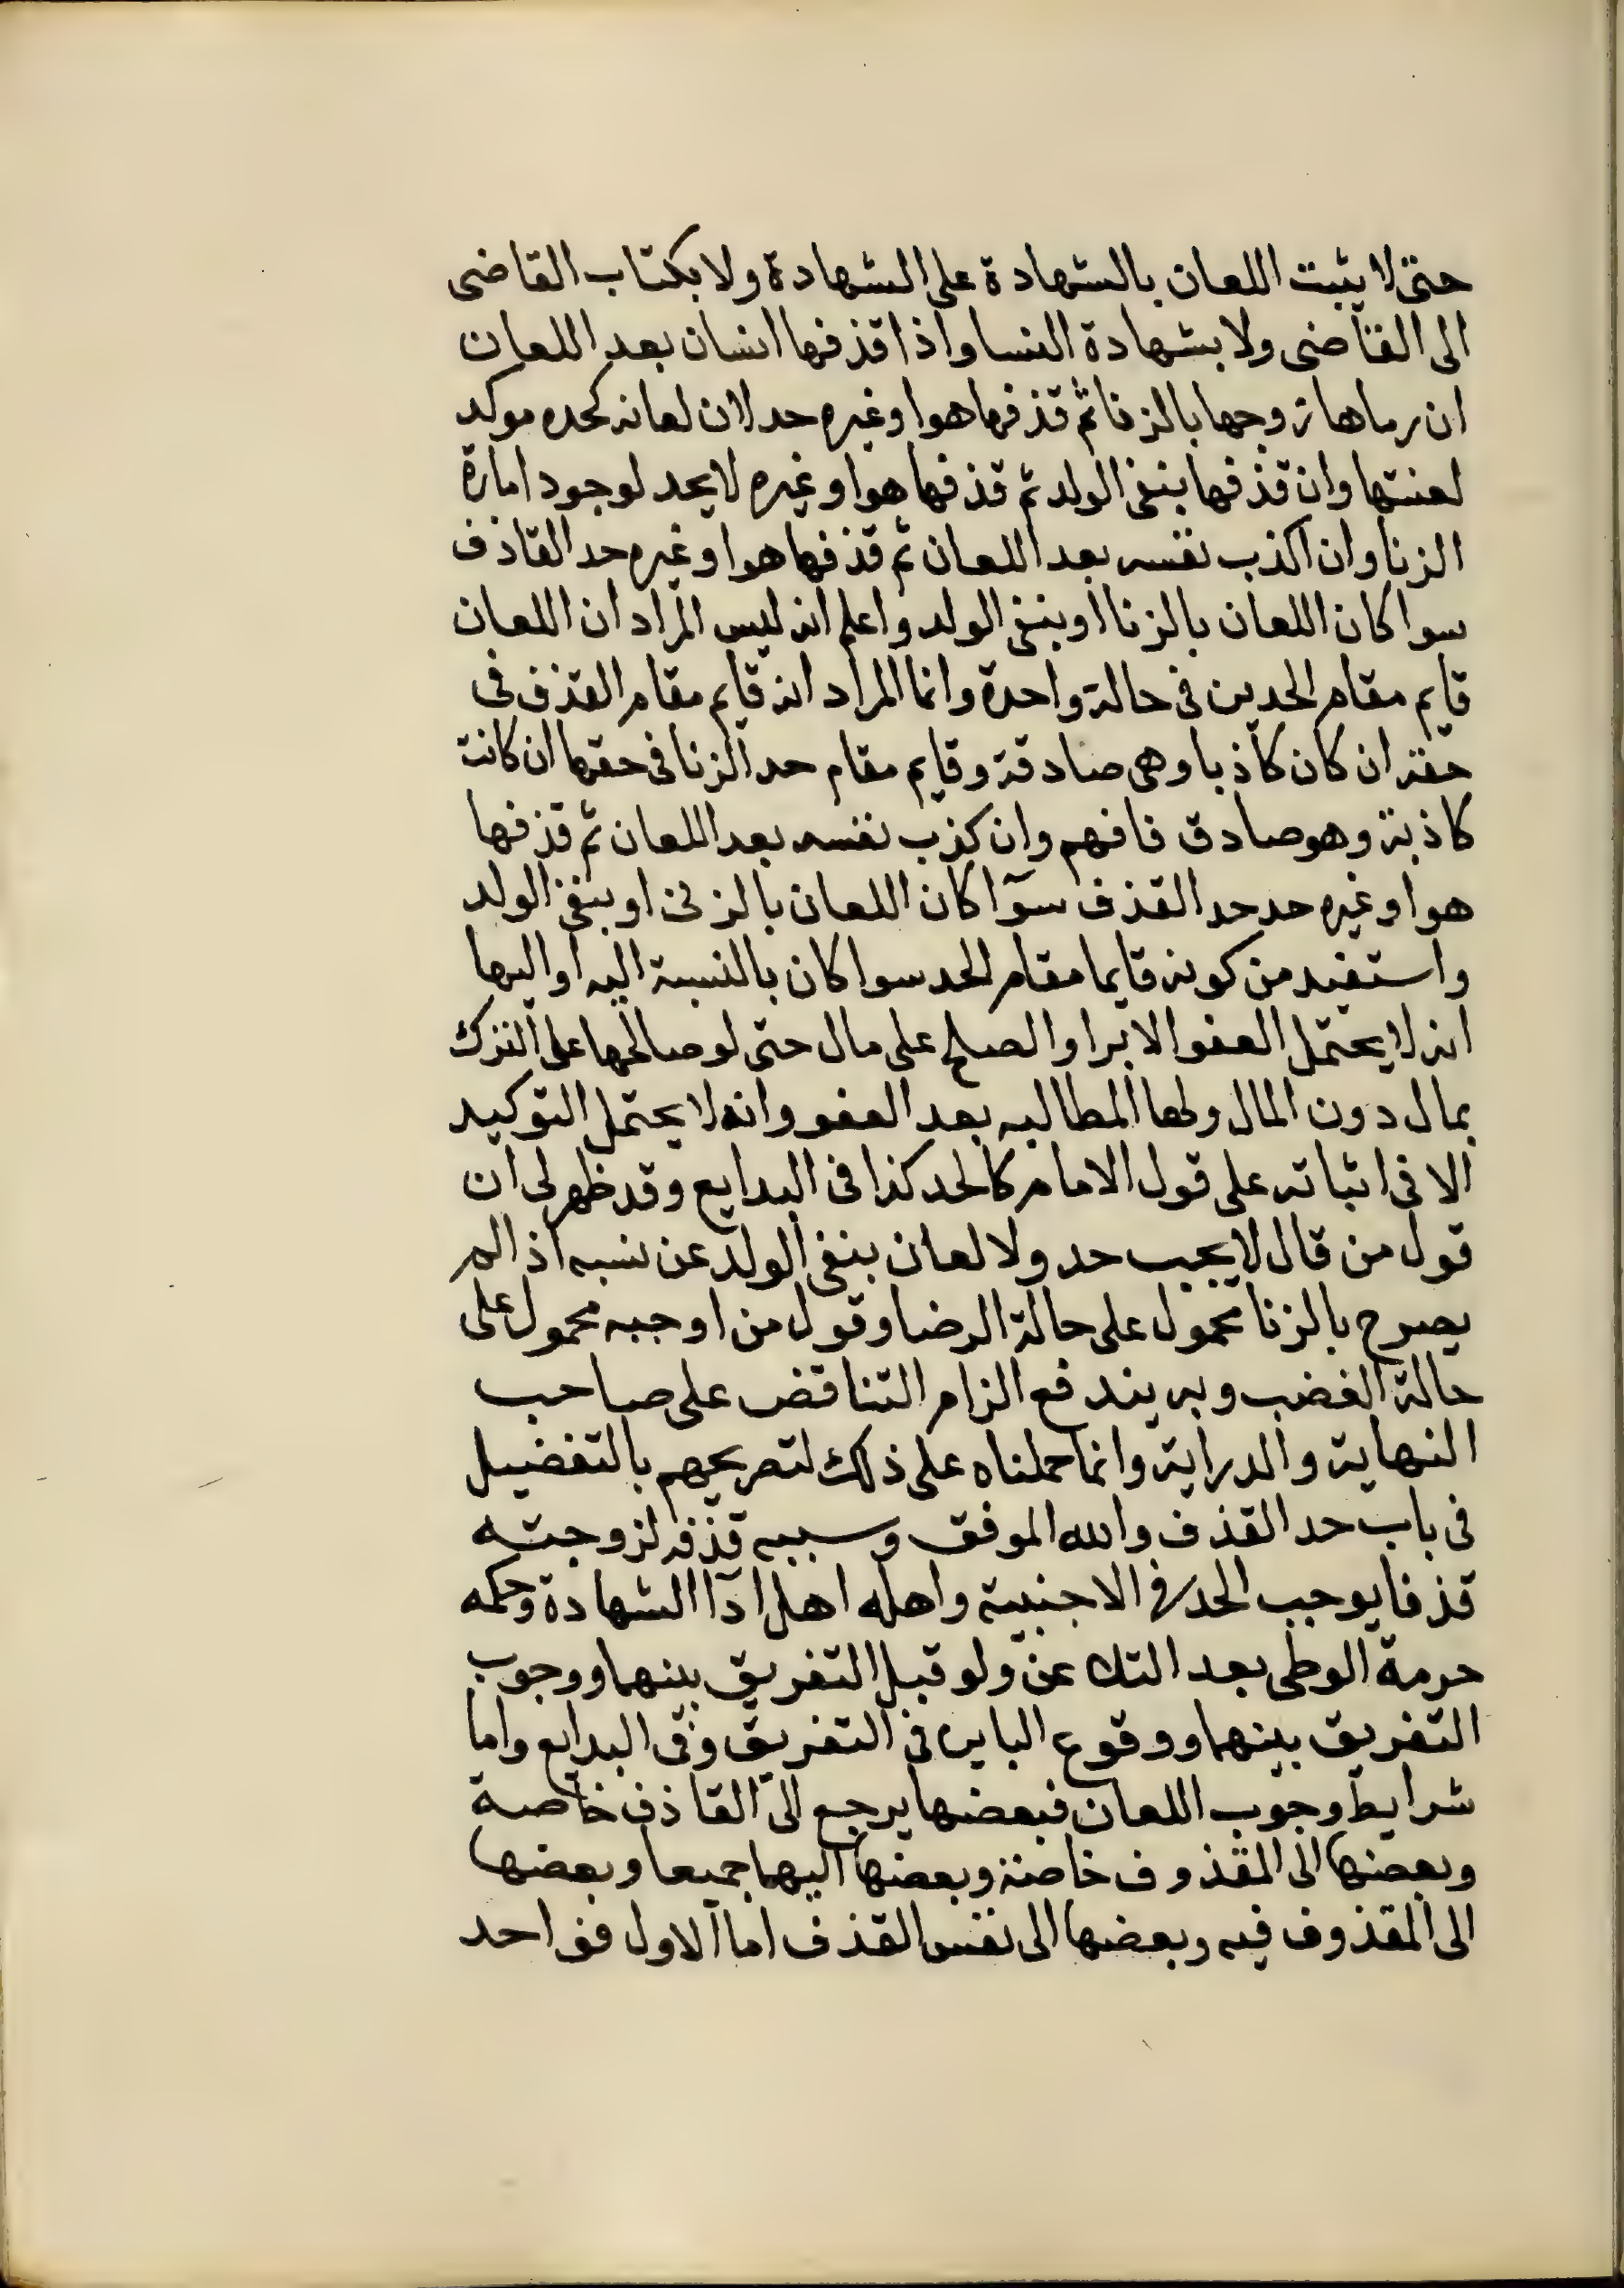 حتى لا يثبت اللعان بالشهادة على الشهادة ولا بكتاب القاضى
الى القاضى ولا بشهادة النسا واذا قذفها انسان بعد اللعان
ان رماها زوجها بالزنا ثم قذفها هوا وغيره حد لان لعانه كحده موكد
لعنتها وان قذفها بنفى الولد ثم قذفها هوا وغيره لا يحد لوجود امارة
الزنا وان اكذب نفسه بعد اللعان ثم قذفها هوا وغيره حد القاذف
سوا كان اللعان بالزنا او بنفى الولد واعلم انه ليس المراد ان اللعان
قايم مقام الحدين فى حالة واحدة وانما المراد انه قايم مقام القذف فى
حقه ان كان كاذبا وهى صادقة وقايم مقام حد الزنا فى حقها ان كانت
كاذبة وهو صادق فافهم وان كذب نفسه بعد اللعان ثم قذفها
هوا وغيره حد حد القذف سوآ كان اللعان بالزنى او بنفى الولد
واستفيد من كونه قايما مقام الحد سوا كان بالنسبة اليه او اليها
انه لا يحتمل العفو الابرا والصلح على مال حتى لو صالحها على الترك
بمال دون المال ولها المطالبه بعد العفو وانه لا يحتمل التوكيد
الا فى اثباته على قول الامام كالحد كذا فى البدايع وقد ظهر لى ان
قول من قال لا يجب حد ولا لعان بنفى الولد عن نسبه اذ الم
يصرح بالزنا محمول على حالة الرضا وقول من اوجبه محمول على
حالة الغضب وبه يندفع الزام التناقض على صاحب
النهاية والدراية وانما حملناه على ذلك لتصريحهم بالتفضيل
فى باب حد القذف والله الموفق وسببه قذفه لزوجته
قذفا يوجب الحد فى الاجنبية واهله اهل ادآ الشهادة وحكمه
حرمة الوطى بعد التلاعن ولو قبل التفريق بينهما ووجوب
التفريق بينهما ووقوع الباين فى التفريق وفى البدايع واما
شرايط وجوب اللعان فبعضها يرجع الى القاذف خاصة
وبعضها الى المقذوف خاصة وبعضها اليهما جميعا وبعضها
الى المقذوف فيه وبعضها الى نفس القذف اما الاول فواحد